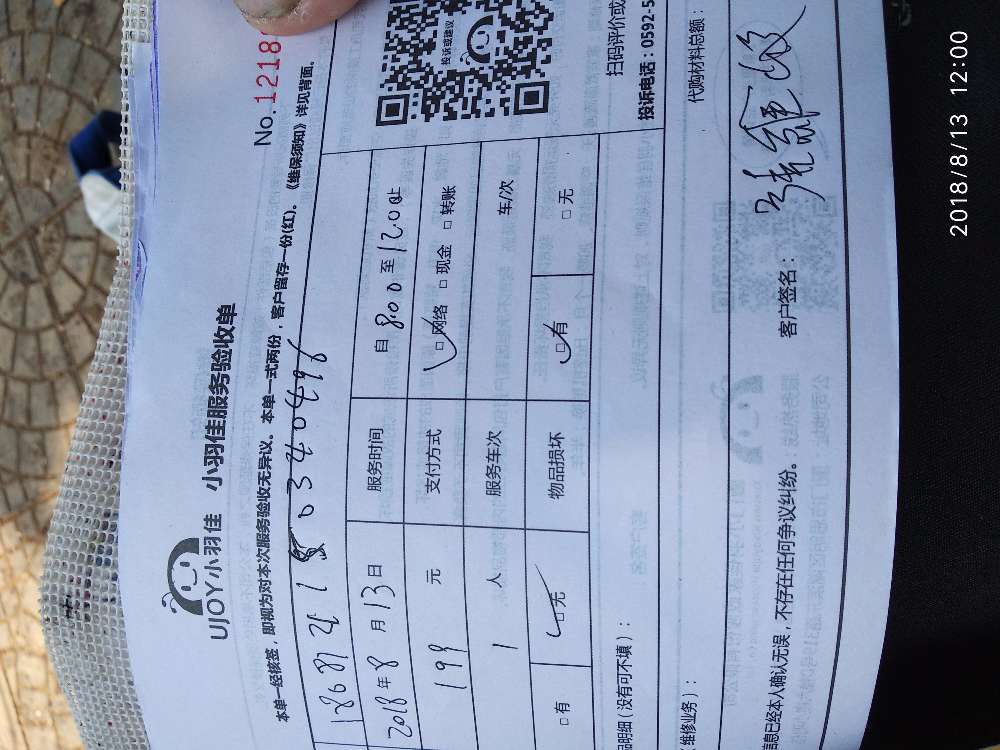 UJOY小羽佳 小羽佳服务验收单
No.1218
本单一经核签，即视为对本次服务验收无异议。本单一式两份，客户留存一份(红)。《维保须知》详见背面。
2018年8月13日 服务时间 自800至1200止
199元 支付方式 □网络 □现金 □转账
1人 服务车次 车/次
□有 □无 物品损坏 □有 □无
投诉或建议
扫码评价或
投诉电话：0592-5
品明细（没有可不填）：
代购材料总额：
维修业务）：
信息已经本人确认无误，不存在任何争议纠纷。 客户签名：
2018/8/13 12:00